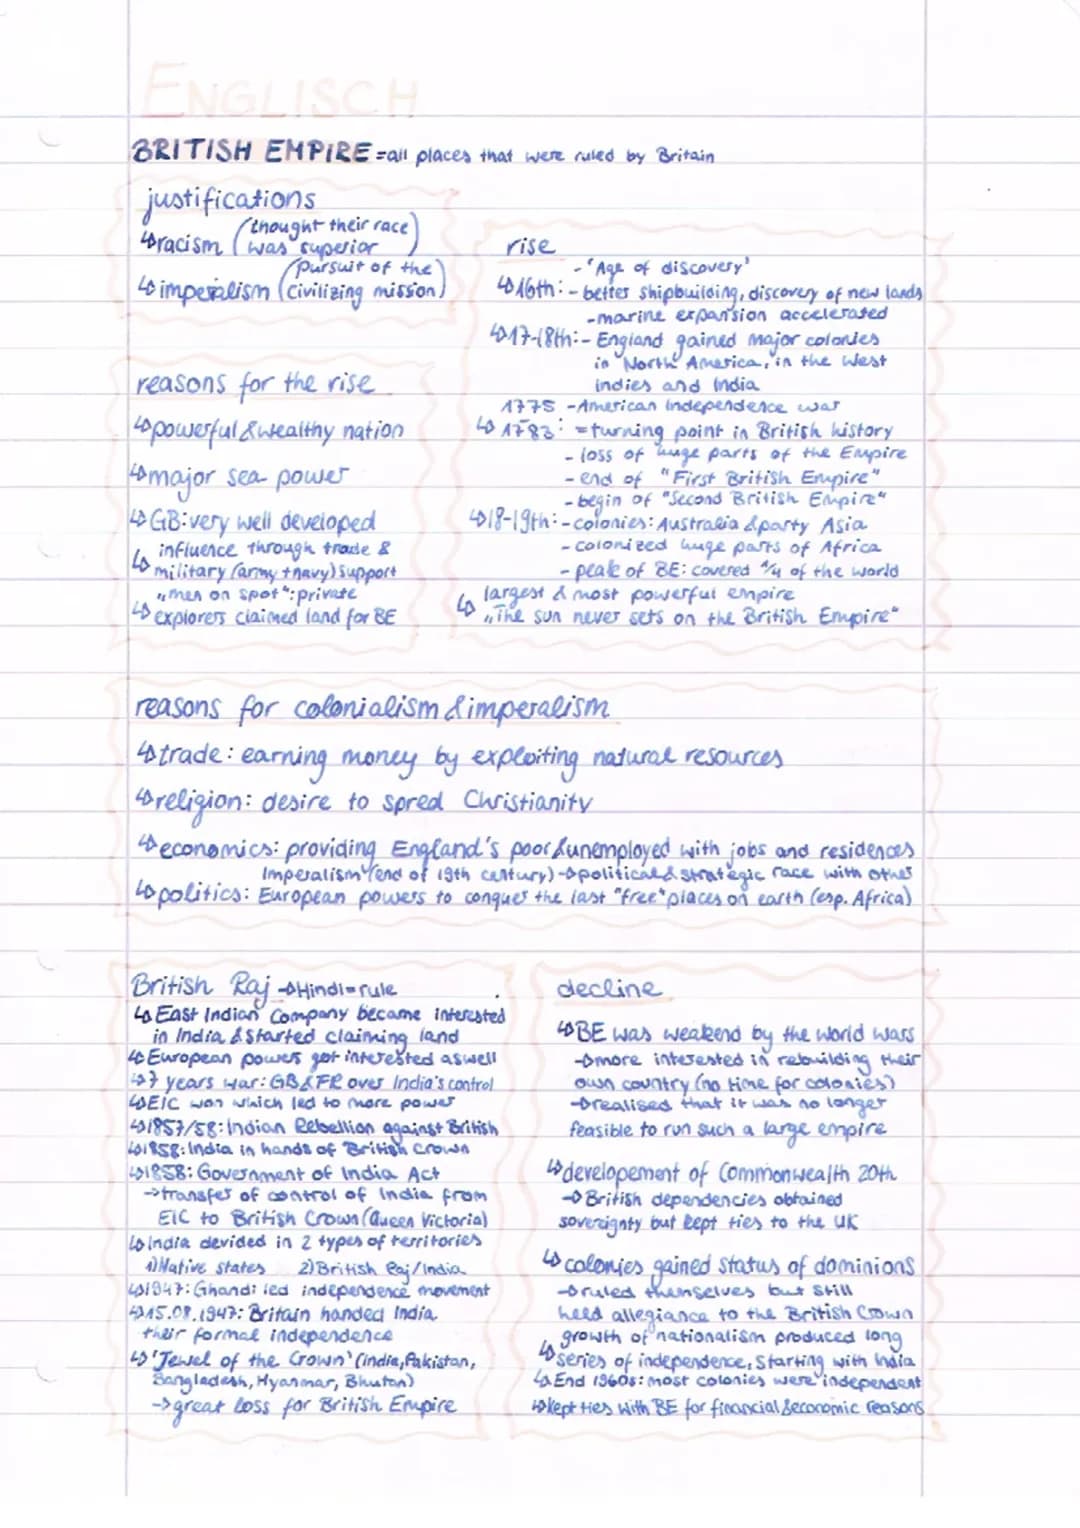 ENGLISCH
BRITISH EMPIRE =all places that were ruled by Britain
justifications
↳racism (thought their race
was superior)
↳imperalism (pursuit of the
civilizing mission)
rise
- 'Age of discovery'
↳16th: - better shipbuilding, discovery of new lands
- marine expansion accelerated
↳17-18th: - England gained major colonies
in North America, in the West
Indies and India
1775 - American Independence war
↳1783: =turning point in British history
- loss of huge parts of the Empire
- end of "First British Empire"
- begin of "Second British Empire"
↳18-19th: - colonies: Australia & party Asia
- colonized huge parts of Africa
- peak of BE: covered 1/4 of the world
↳ largest & most powerful empire
„The sun never sets on the British Empire"
reasons for the rise
↳powerful & wealthy nation
↳major sea power
↳GB: very well developed
↳ influence through trade &
military (army + navy) support
„men on spot": private
↳ explorers claimed land for BE
reasons for colonialism & imperalism
↳trade: earning money by exploiting natural resources
↳religion: desire to spred Christianity
↳economics: providing England's poor & unemployed with jobs and residences
Imperalism (end of 19th century) → political & strategic race with other
↳politics: European powers to conquer the last "free" places on earth (esp. Africa)
British Raj →Hindi=rule
↳East Indian Company became interested
in India & started claiming land
↳European powers got interested aswell
↳7 years war: GB & FR over India's control
↳EIC won which led to more power
↳1857/58: Indian Rebellion against British
↳1858: India in hands of British Crown
↳1858: Government of India Act
→transfer of control of India from
EIC to British Crown (Queen Victoria)
↳India devided in 2 types of territories
1) Native states 2) British Raj/India
↳1947: Ghandi led independence movement
↳15.08.1947: Britain handed India
their formal independence
↳'Jewel of the Crown' (India, Pakistan,
Bangladesh, Myanmar, Bhutan)
→great loss for British Empire
decline
↳BE was weakend by the world wars
→more interested in rebuilding their
own country (no time for colonies)
→realised that it was no longer
feasible to run such a large empire
↳developement of Commonwealth 20th
→British dependencies obtained
sovereignty but kept ties to the UK
↳colonies gained status of dominions
→ruled themselves but still
held allegiance to the British Crown
↳ growth of nationalism produced long
series of independence, starting with India
↳End 1960s: most colonies were independent
↳kept ties with BE for financial & economic reasons